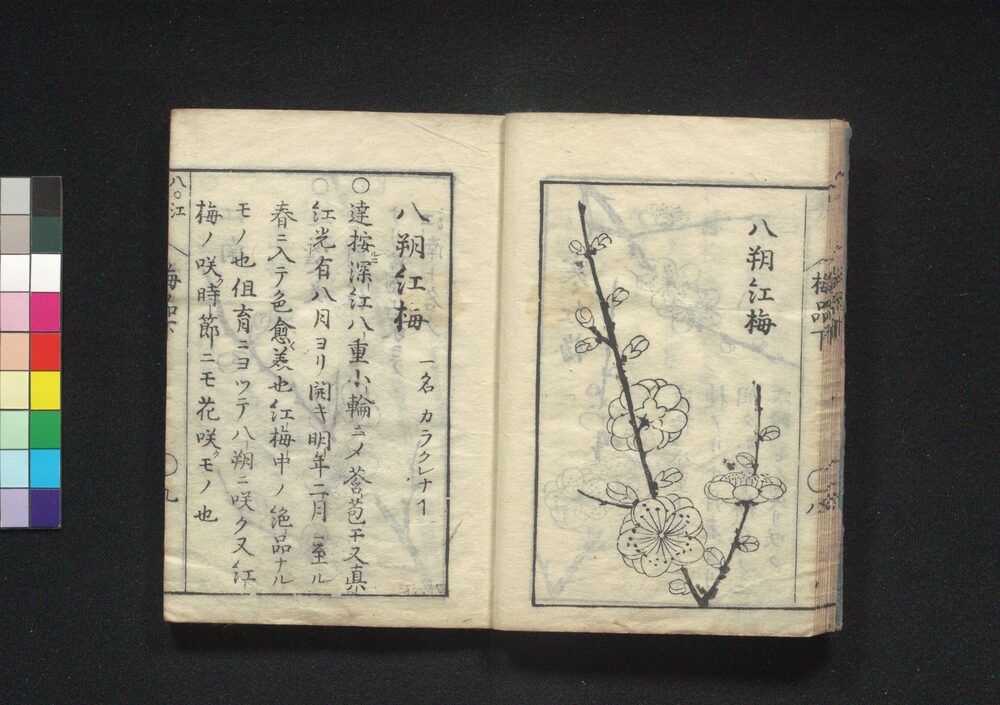 八朔紅梅
梅品下
八
八朔紅梅 一名 カラクレナイ
○達按深紅八重小輪ニメ莟苞モ又真
紅光有八月ヨリ開キ明年二月ニ至ル
春ニ入テ色愈美也紅梅中ノ絶品ナル
モノ也但育ニヨツテ八朔ニ咲ク又紅
梅ノ咲ク時節ニモ花咲クモノ也
八○江
梅品下
九